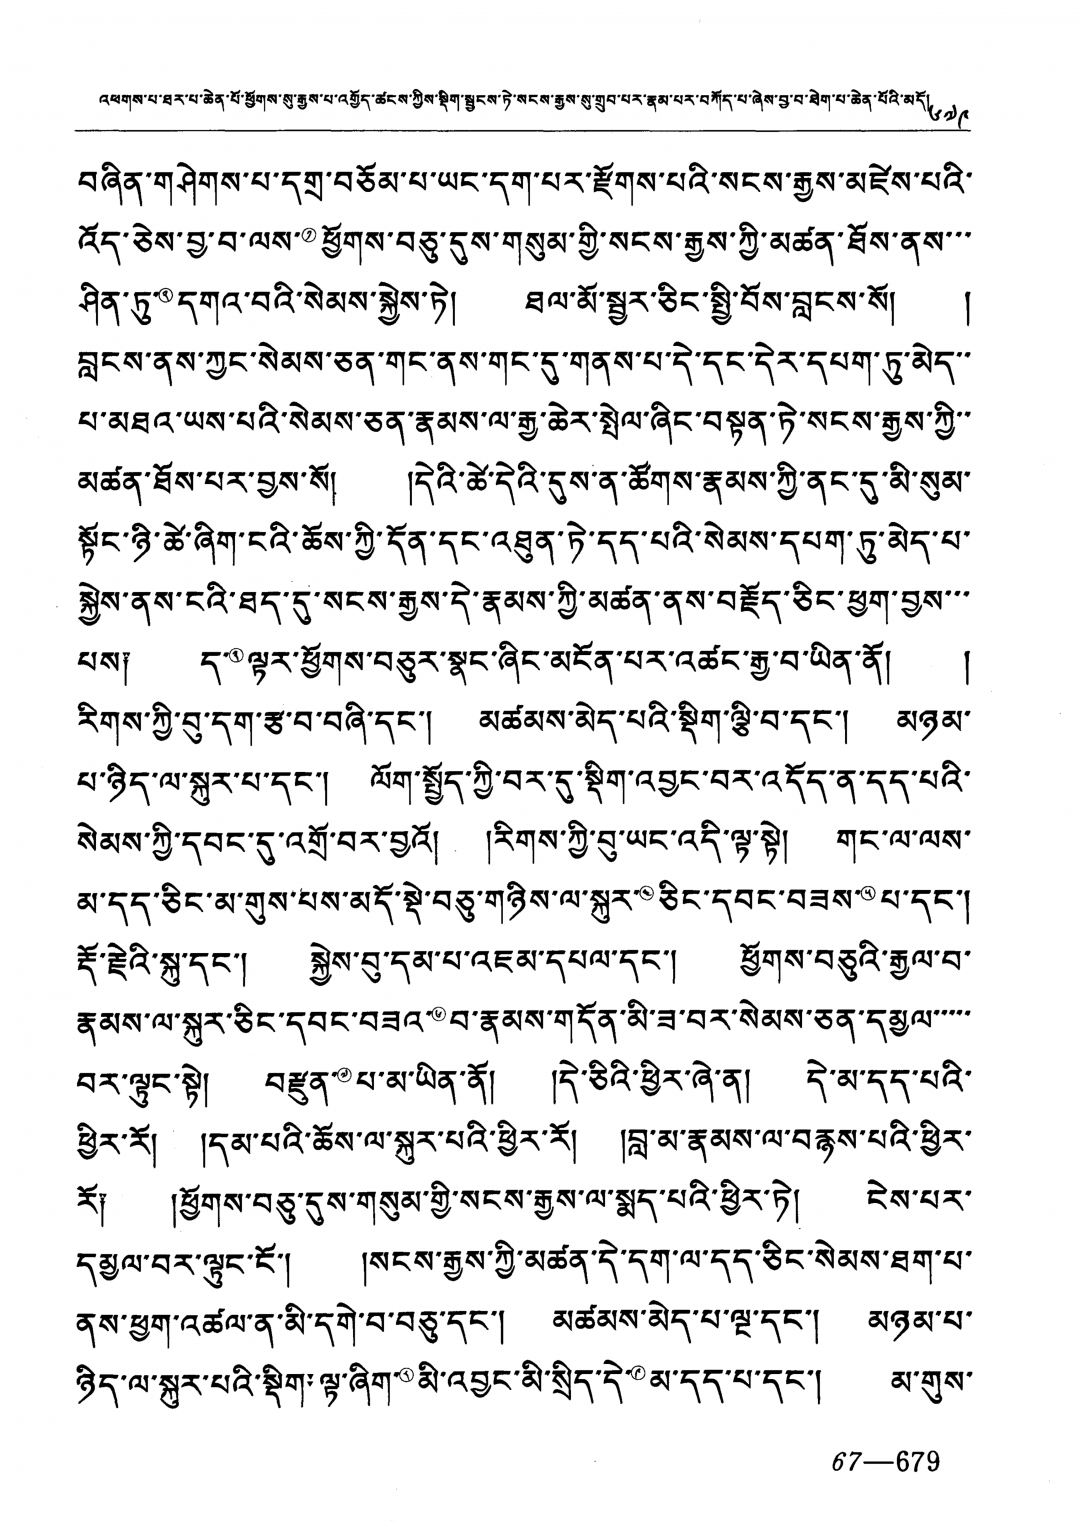 འཕགས་པ་ཐར་པ་ཆེན་པོ་ཕྱོགས་སུ་རྒྱས་པ་འགྱོད་ཚངས་ཀྱིས་སྡིག་སྦྱངས་ཏེ་སངས་རྒྱས་སུ་གྲུབ་པར་རྣམ་པར་བཀོད་པ་ཞེས་བྱ་བ་ཐེག་པ་ཆེན་པོའི་མདོ། ༦༧༩
བཞིན་གཤེགས་པ་དགྲ་བཅོམ་པ་ཡང་དག་པར་རྫོགས་པའི་སངས་རྒྱས་མཛེས་པའི་
འོད་ཅེས་བྱ་བ་ལས་ཕྱོགས་བཅུ་དུས་གསུམ་གྱི་སངས་རྒྱས་ཀྱི་མཚན་ཐོས་ནས་་་
ཤིན་ཏུ་དགའ་བའི་སེམས་སྐྱེས་ཏེ། ཐལ་མོ་སྦྱར་ཅིང་སྤྱི་བོས་བླངས་སོ། །
བླངས་ནས་ཀྱང་སེམས་ཅན་གང་ནས་གང་དུ་གནས་པ་དེ་དང་དེར་དཔག་ཏུ་མེད་་
པ་མཐའ་ཡས་པའི་སེམས་ཅན་རྣམས་ལ་རྒྱ་ཆེར་སྤེལ་ཞིང་བསྟན་ཏེ་སངས་རྒྱས་ཀྱི་་
མཚན་ཐོས་པར་བྱས་སོ། །དེའི་ཚེ་དེའི་དུས་ན་ཚོགས་རྣམས་ཀྱི་ནང་དུ་མི་སུམ་
སྟོང་ཉི་ཚེ་ཞིག་ངའི་ཆོས་ཀྱི་དོན་དང་འཐུན་ཏེ་དད་པའི་སེམས་དཔག་ཏུ་མེད་པ་
སྐྱེས་ནས་ངའི་ཐད་དུ་སངས་རྒྱས་དེ་རྣམས་ཀྱི་མཚན་ནས་བརྗོད་ཅིང་ཕྱག་བྱས་་་
པས༑ ད་④ལྟར་ཕྱོགས་བཅུར་སྣང་ཞིང་མངོན་པར་འཚང་རྒྱ་བ་ཡིན་ནོ། །
རིགས་ཀྱི་བུ་དག་རྩ་བ་བཞི་དང་། མཚམས་མེད་པའི་སྡིག་ལྕི་བ་དང་། མཉམ་
པ་ཉིད་ལ་སྐུར་པ་དང་། ལོག་སྤྱོད་ཀྱི་བར་དུ་སྡིག་འབྱང་བར་འདོད་ན་དད་པའི་
སེམས་ཀྱི་དབང་དུ་འགྲོ་བར་བྱའོ། །རིགས་ཀྱི་བུ་ཡང་འདི་ལྟ་སྟེ། གང་ལ་ལས་
མ་དད་ཅིང་མ་གུས་པས་མདོ་སྡེ་བཅུ་གཉིས་ལ་སྐུར་ཅིང་དབང་བཟས་པ་དང་།
རྡོ་རྗེའི་སྐུ་དང་། སྐྱེས་བུ་དམ་པ་འཇམ་དཔལ་དང་། ཕྱོགས་བཅུའི་རྒྱལ་བ་
རྣམས་ལ་སྐུར་ཅིང་དབང་བཟའ་བ་རྣམས་གདོན་མི་ཟ་བར་སེམས་ཅན་དམྱལ་་་་་
བར་ལྟུང་སྟེ། བརྫུན་པ་མ་ཡིན་ནོ། །དེ་ཅིའི་ཕྱིར་ཞེ་ན། དེ་མ་དད་པའི་
ཕྱིར་རོ། །དམ་པའི་ཆོས་ལ་སྐུར་པའི་ཕྱིར་རོ། །བླ་མ་རྣམས་ལ་བརྙས་པའི་ཕྱིར་
རོ༑ །ཕྱོགས་བཅུ་དུས་གསུམ་གྱི་སངས་རྒྱས་ལ་སྨད་པའི་ཕྱིར་ཏེ། ངེས་པར་
དམྱལ་བར་ལྟུང་ངོ་། །སངས་རྒྱས་ཀྱི་མཚན་དེ་དག་ལ་དད་ཅིང་སེམས་ཐག་པ་
ནས་ཕྱག་འཚལ་ན་མི་དགེ་བ་བཅུ་དང་། མཚམས་མེད་པ་ལྔ་དང་། མཉམ་པ་
ཉིད་ལ་སྐུར་པའི་སྡིག་ལྟ་ཞིག་མི་འབྱང་མི་སྲིད་དེ་མ་དད་པ་དང་། མ་གུས་
67—679